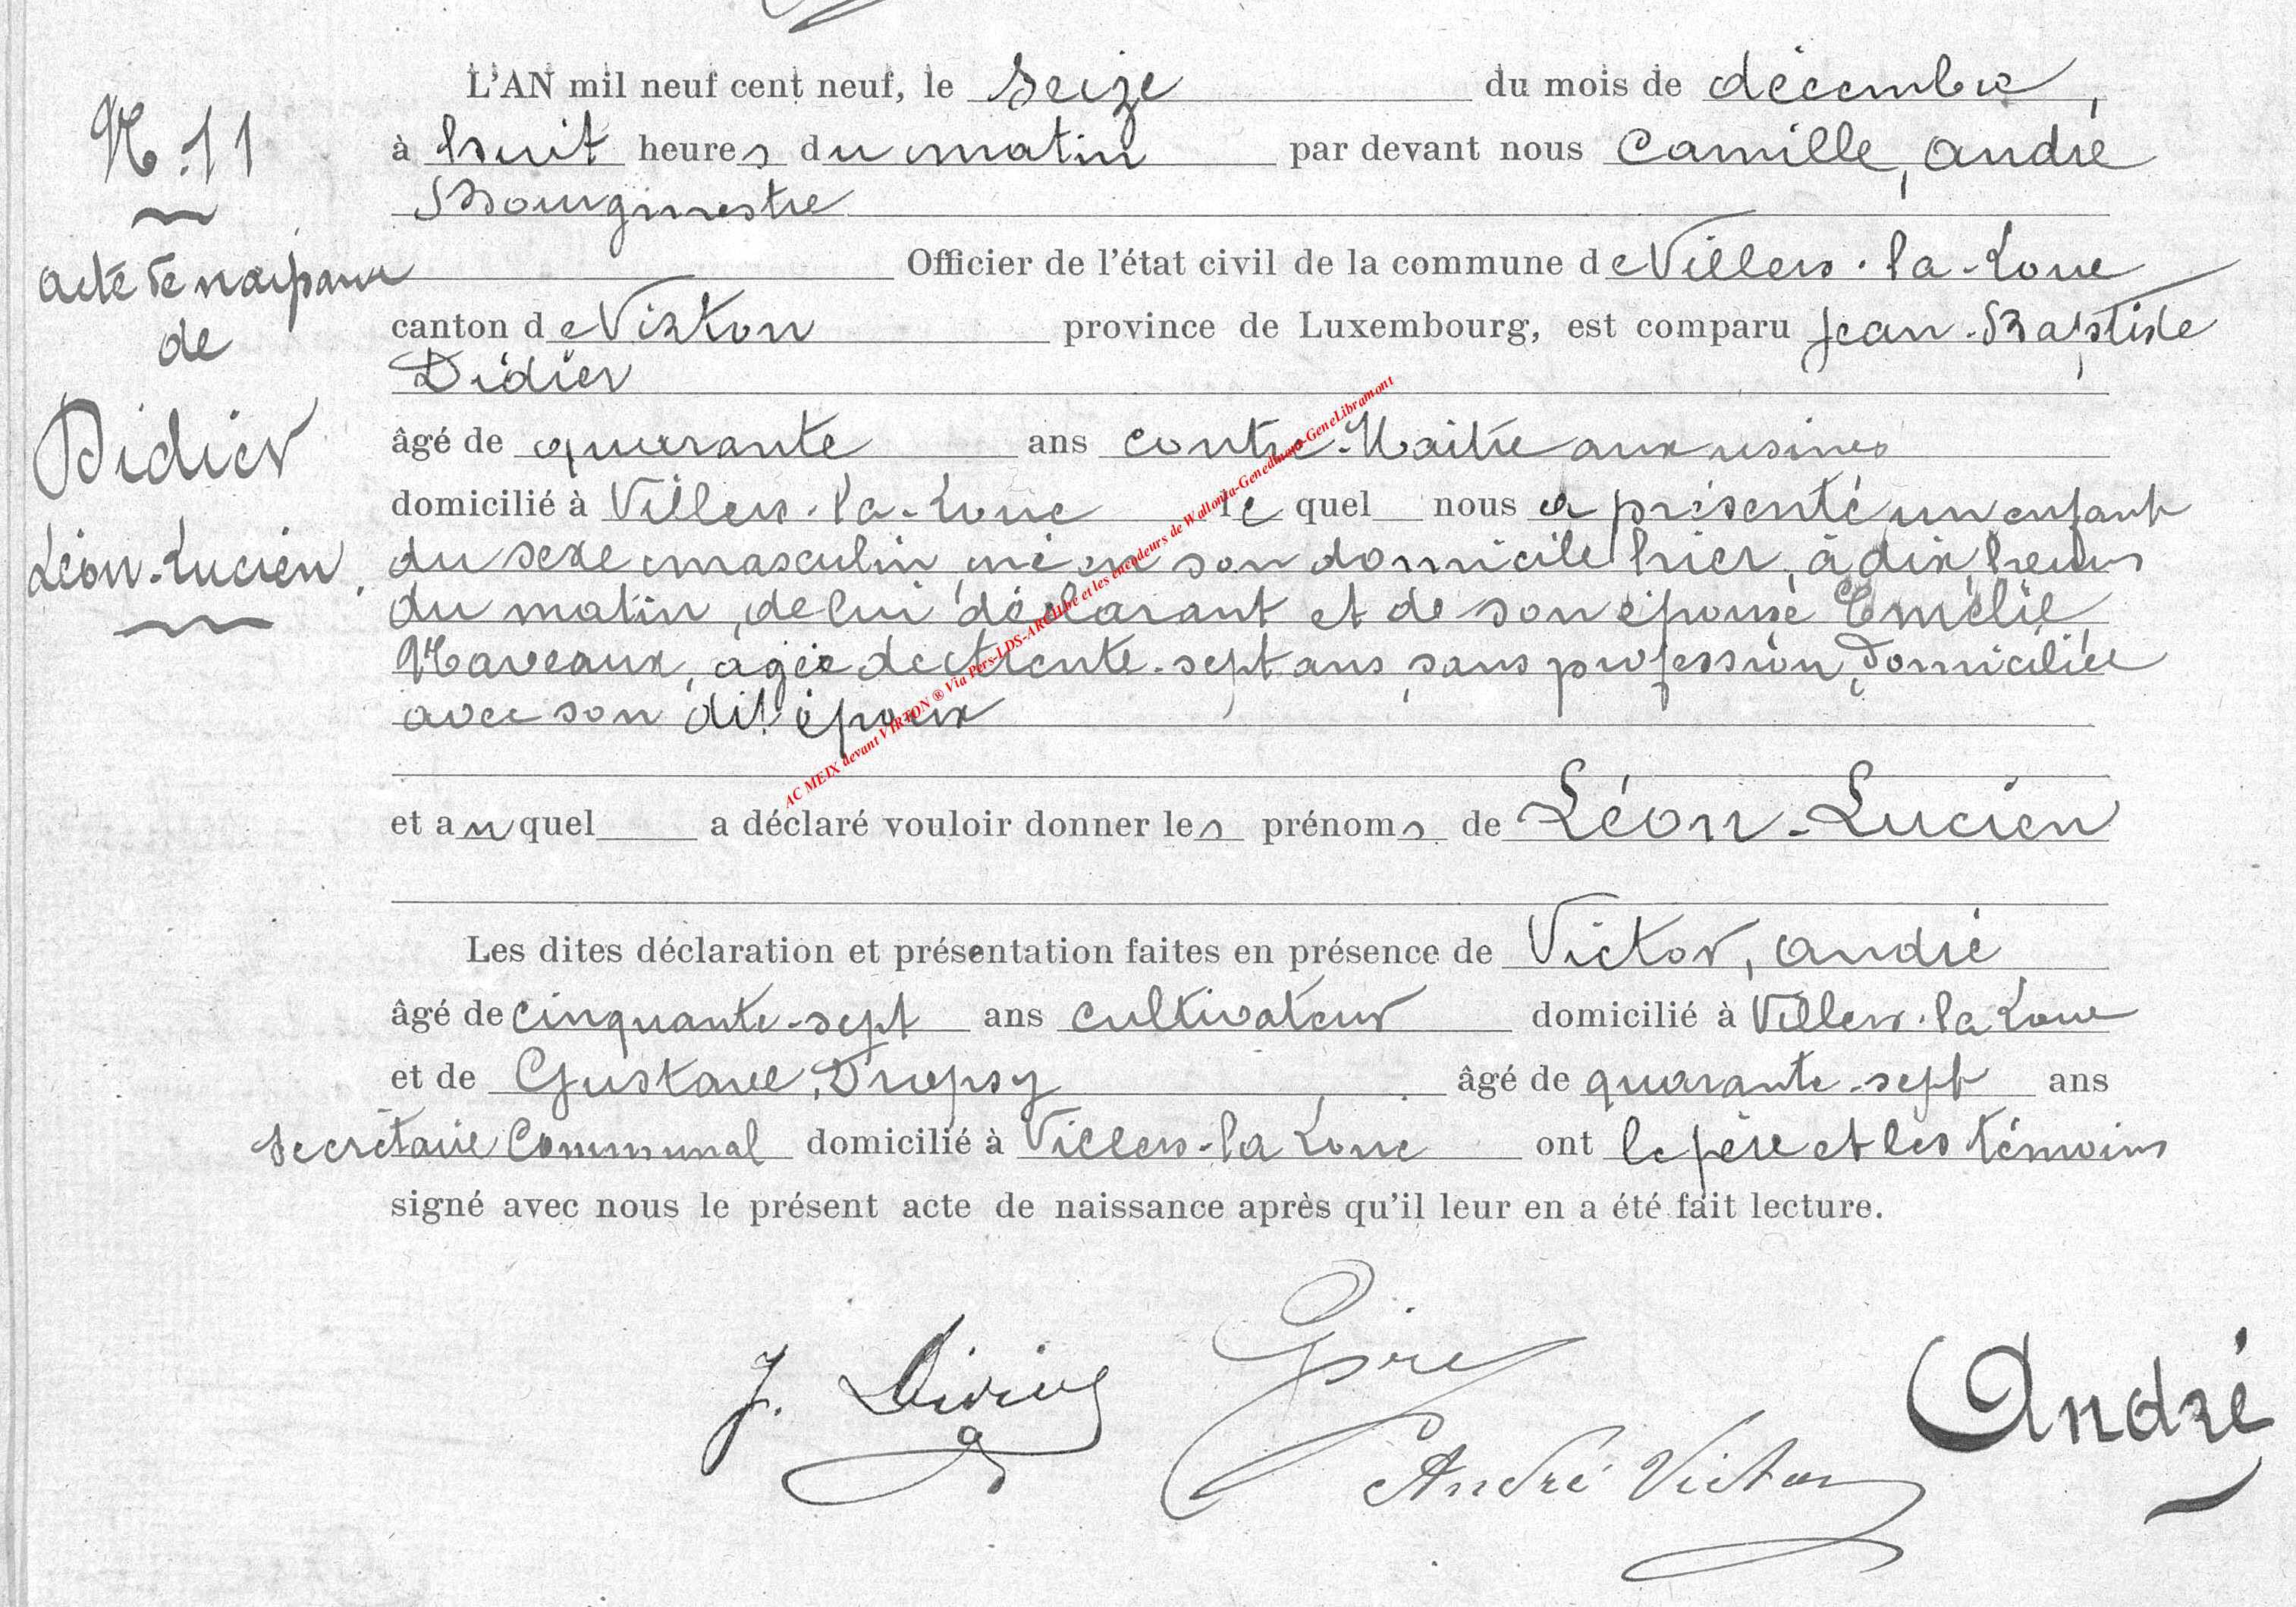 N. 11
acte de naissance
de
Didier
Léon-Lucien.
L'AN mil neuf cent neuf, le seize du mois de décembre,
à huit heures du matin par devant nous Camille, andré
Bourgmestre
Officier de l'état civil de la commune de Villers-la-Loue
canton de Virton province de Luxembourg, est comparu Jean-Baptiste
Didier
âgé de quarante ans contre-Maître aux usines
domicilié à Villers-la-Loue le quel nous a présenté un enfant
du sexe masculin, né en son domicile hier, à dix heures
du matin, de lui déclarant et de son épouse Emélie
Naveaux, agée de trente-sept ans, sans profession, domiciliée
avec son dit époux
et au quel a déclaré vouloir donner les prénoms de Léon-Lucien
Les dites déclaration et présentation faites en présence de Victor, andré
âgé de cinquante-sept ans cultivateur domicilié à Villers-la Loue
et de Gustave, Dropsy âgé de quarante-sept ans
secrétaire Communal domicilié à Villers-la Loue ont le père et les témoins
signé avec nous le présent acte de naissance après qu'il leur en a été fait lecture.
J. Didier
André
André Victor
AC MEIX devant VIRTON ® Via Pers-LDS-ARCHive et les encodeurs de Wallonia-Genedinant-GeneLibramont